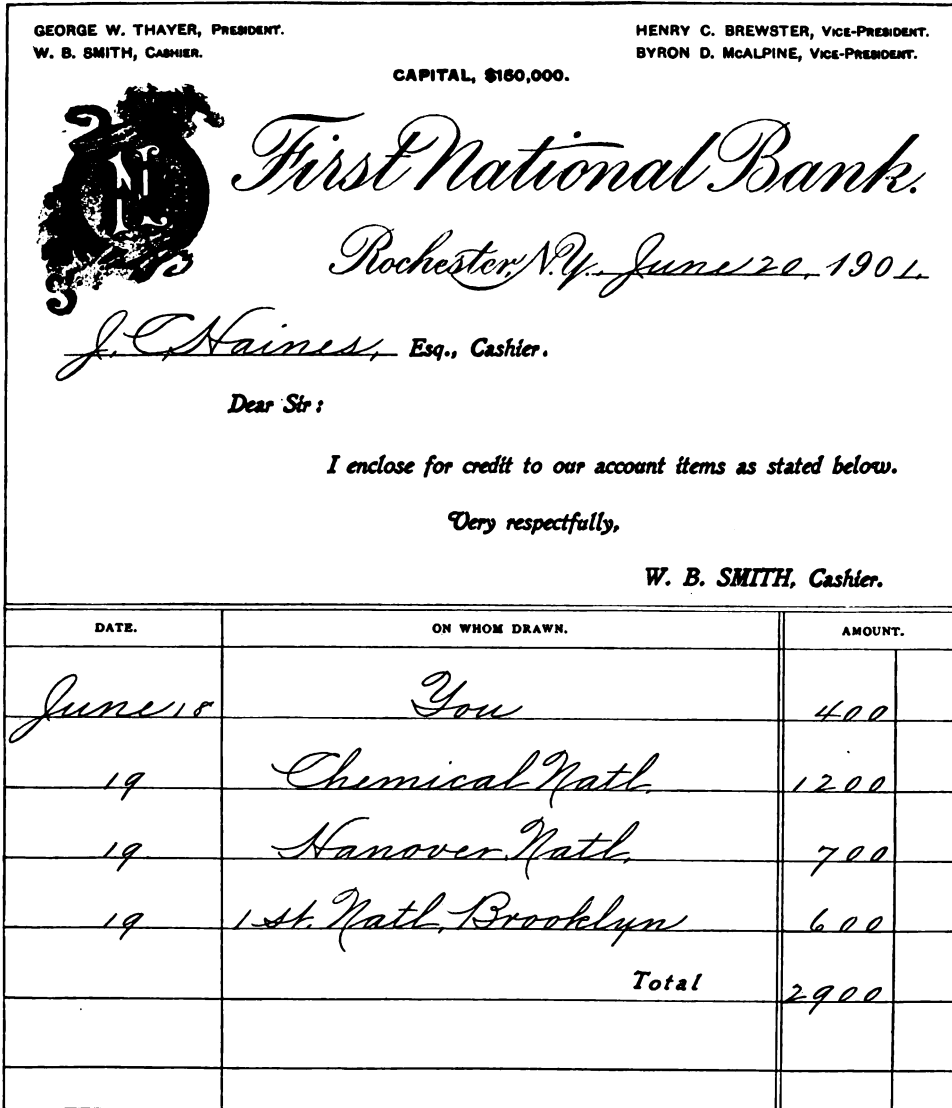 GEORGE W. THAYER, PRESIDENT. HENRY C. BREWSTER, VICE-PRESIDENT.
W. B. SMITH, CASHIER. BYRON D. MCALPINE, VICE-PRESIDENT.
CAPITAL, $150,000.
First National Bank.
Rochester, N.Y. June 20, 1901.
J. C. Haines, Esq., Cashier.
Dear Sir:
I enclose for credit to our account items as stated below.
Very respectfully,
W. B. SMITH, Cashier.
DATE. ON WHOM DRAWN. AMOUNT.
June 18 You 400
19 Chemical Natl. 1200
19 Hanover Natl. 700
19 1st. Natl. Brooklyn 600
Total 2900